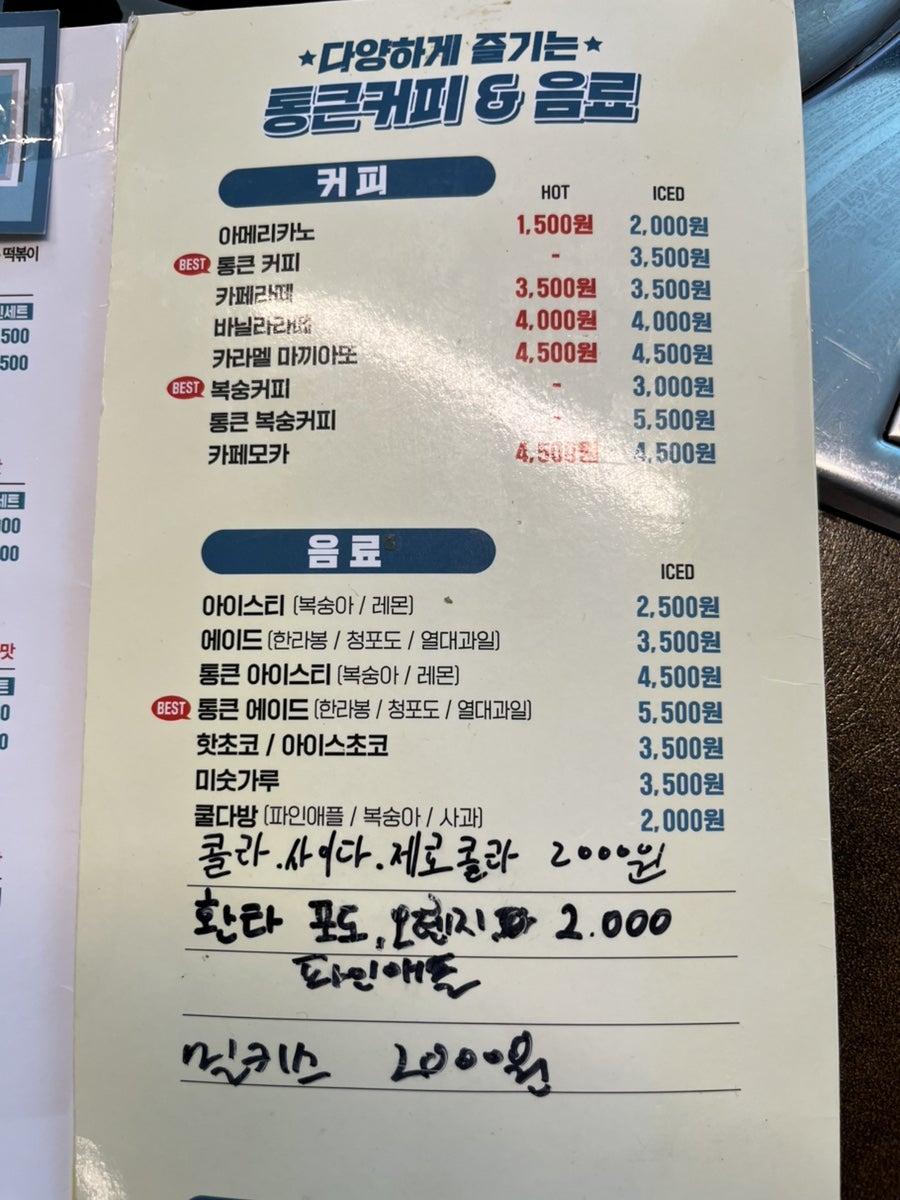 ★다양하게 즐기는★
통큰커피 & 음료
커피 HOT ICED
아메리카노 1,500원 2,000원
BEST 통큰 커피 - 3,500원
카페라떼 3,500원 3,500원
바닐라라떼 4,000원 4,000원
카라멜 마끼아또 4,500원 4,500원
BEST 복숭커피 - 3,000원
통큰 복숭커피 - 5,500원
카페모카 4,500원 4,500원
음료 ICED
아이스티 (복숭아 / 레몬) 2,500원
에이드 (한라봉 / 청포도 / 열대과일) 3,500원
통큰 아이스티 (복숭아 / 레몬) 4,500원
BEST 통큰 에이드 (한라봉 / 청포도 / 열대과일) 5,500원
핫초코 / 아이스초코 3,500원
미숫가루 3,500원
쿨다방 (파인애플 / 복숭아 / 사과) 2,000원
콜라.사이다.제로콜라 2000원
환타 포도, 오렌지 2.000
파인애플
밀키스 2000원
떡볶이
세트
500
500
세트
00
00
맛
0
0